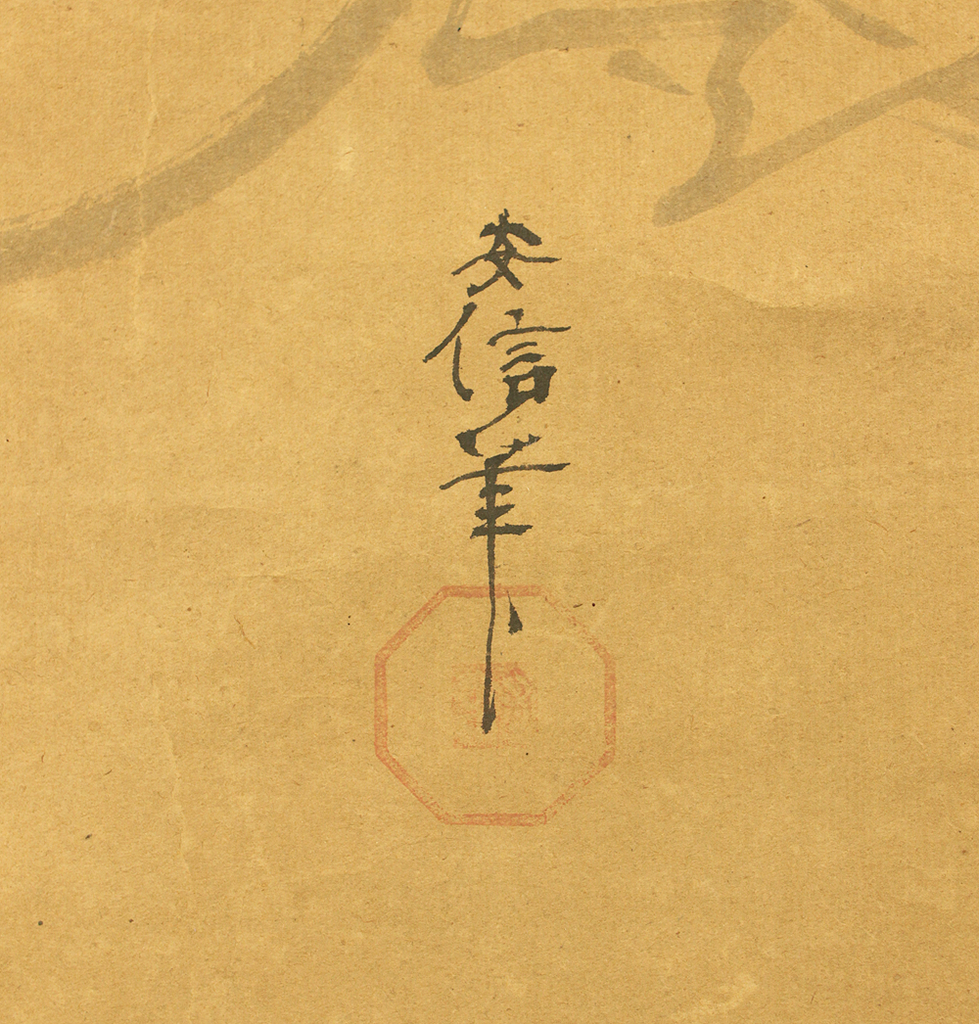 安信筆